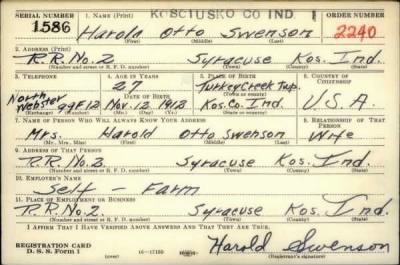 SERIAL NUMBER 1. NAME (Print) KOSCIUSKO CO IND 1 ORDER NUMBER
1586 Harold Otto Swenson 2240
(First) (Middle) (Last)
2. ADDRESS (Print)
R.R. No. 2 Syracuse Kos. Ind.
(Number and street or R. F. D. number) (Town) (County) (State)
3. TELEPHONE 4. AGE IN YEARS 5. PLACE OF BIRTH 6. COUNTRY OF CITIZENSHIP
27 Turkey Creek Twp.
North Webster 99F12 DATE OF BIRTH (Town or county)
Nov. 12 1912 Kos. Co. Ind. U.S.A.
(Exchange) (Number) (Mo.) (Day) (Yr.) (State or country)
7. NAME OF PERSON WHO WILL ALWAYS KNOW YOUR ADDRESS 8. RELATIONSHIP OF THAT PERSON
Mrs. Harold Otto Swenson Wife
(Mr., Mrs., Miss) (First) (Middle) (Last)
9. ADDRESS OF THAT PERSON
R.R. No. 2 Syracuse Kos. Ind.
(Number and street or R. F. D. number) (Town) (County) (State)
10. EMPLOYER'S NAME
Self - Farm
11. PLACE OF EMPLOYMENT OR BUSINESS
R.R. No. 2 Syracuse Kos. Ind.
(Number and street or R. F. D. number) (Town) (County) (State)
I AFFIRM THAT I HAVE VERIFIED ABOVE ANSWERS AND THAT THEY ARE TRUE.
REGISTRATION CARD Harold Swenson
D. S. S. Form 1 (over) 16-17105 (Registrant's signature)